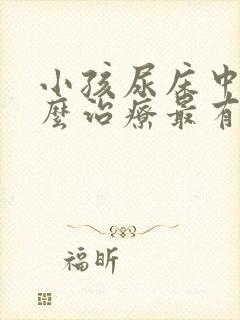 小孩尿床中
麼治療最有
福昕